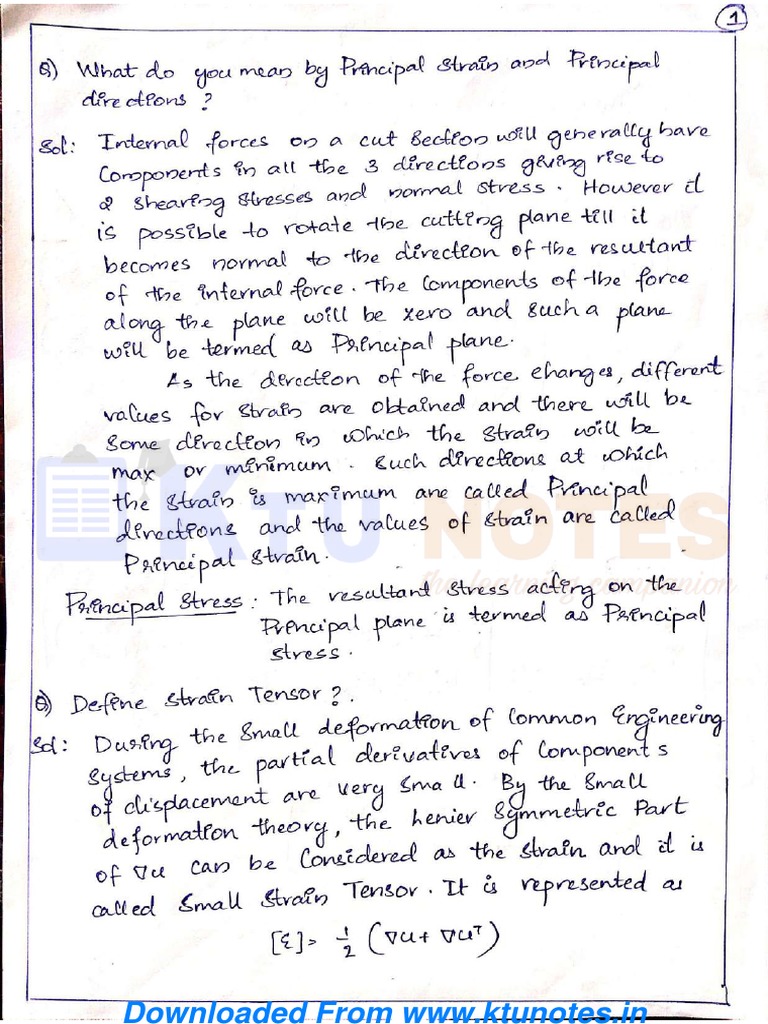 1
Q) What do you mean by Principal strain and Principal
directions?
Sol: Internal forces on a cut section will generally have
Components in all the 3 directions giving rise to
2 shearing stresses and normal stress. However it
is possible to rotate the cutting plane till it
becomes normal to the direction of the resultant
of the internal force. The Components of the force
along the plane will be zero and such a plane
will be termed as Principal plane.
As the direction of the force changes, different
values for strain are obtained and there will be
some direction in which the strain will be
max or minimum. such directions at which
the strain is maximum are called Principal
directions and the values of strain are called
Principal strain.
KTU NOTES
the learning companion
Principal stress: The resultant stress acting on the
Principal plane is termed as Principal
stress.
Q) Define strain Tensor?.
Sol: During the small deformation of Common Engineering
systems, the partial derivatives of Components
of displacement are very small. By the small
deformation theory, the henier symmetric Part
of ∇u can be Considered as the strain and it is
called small strain Tensor. It is represented as
[ε]= 1/2 (∇u + ∇uᵀ)
Downloaded From www.ktunotes.in